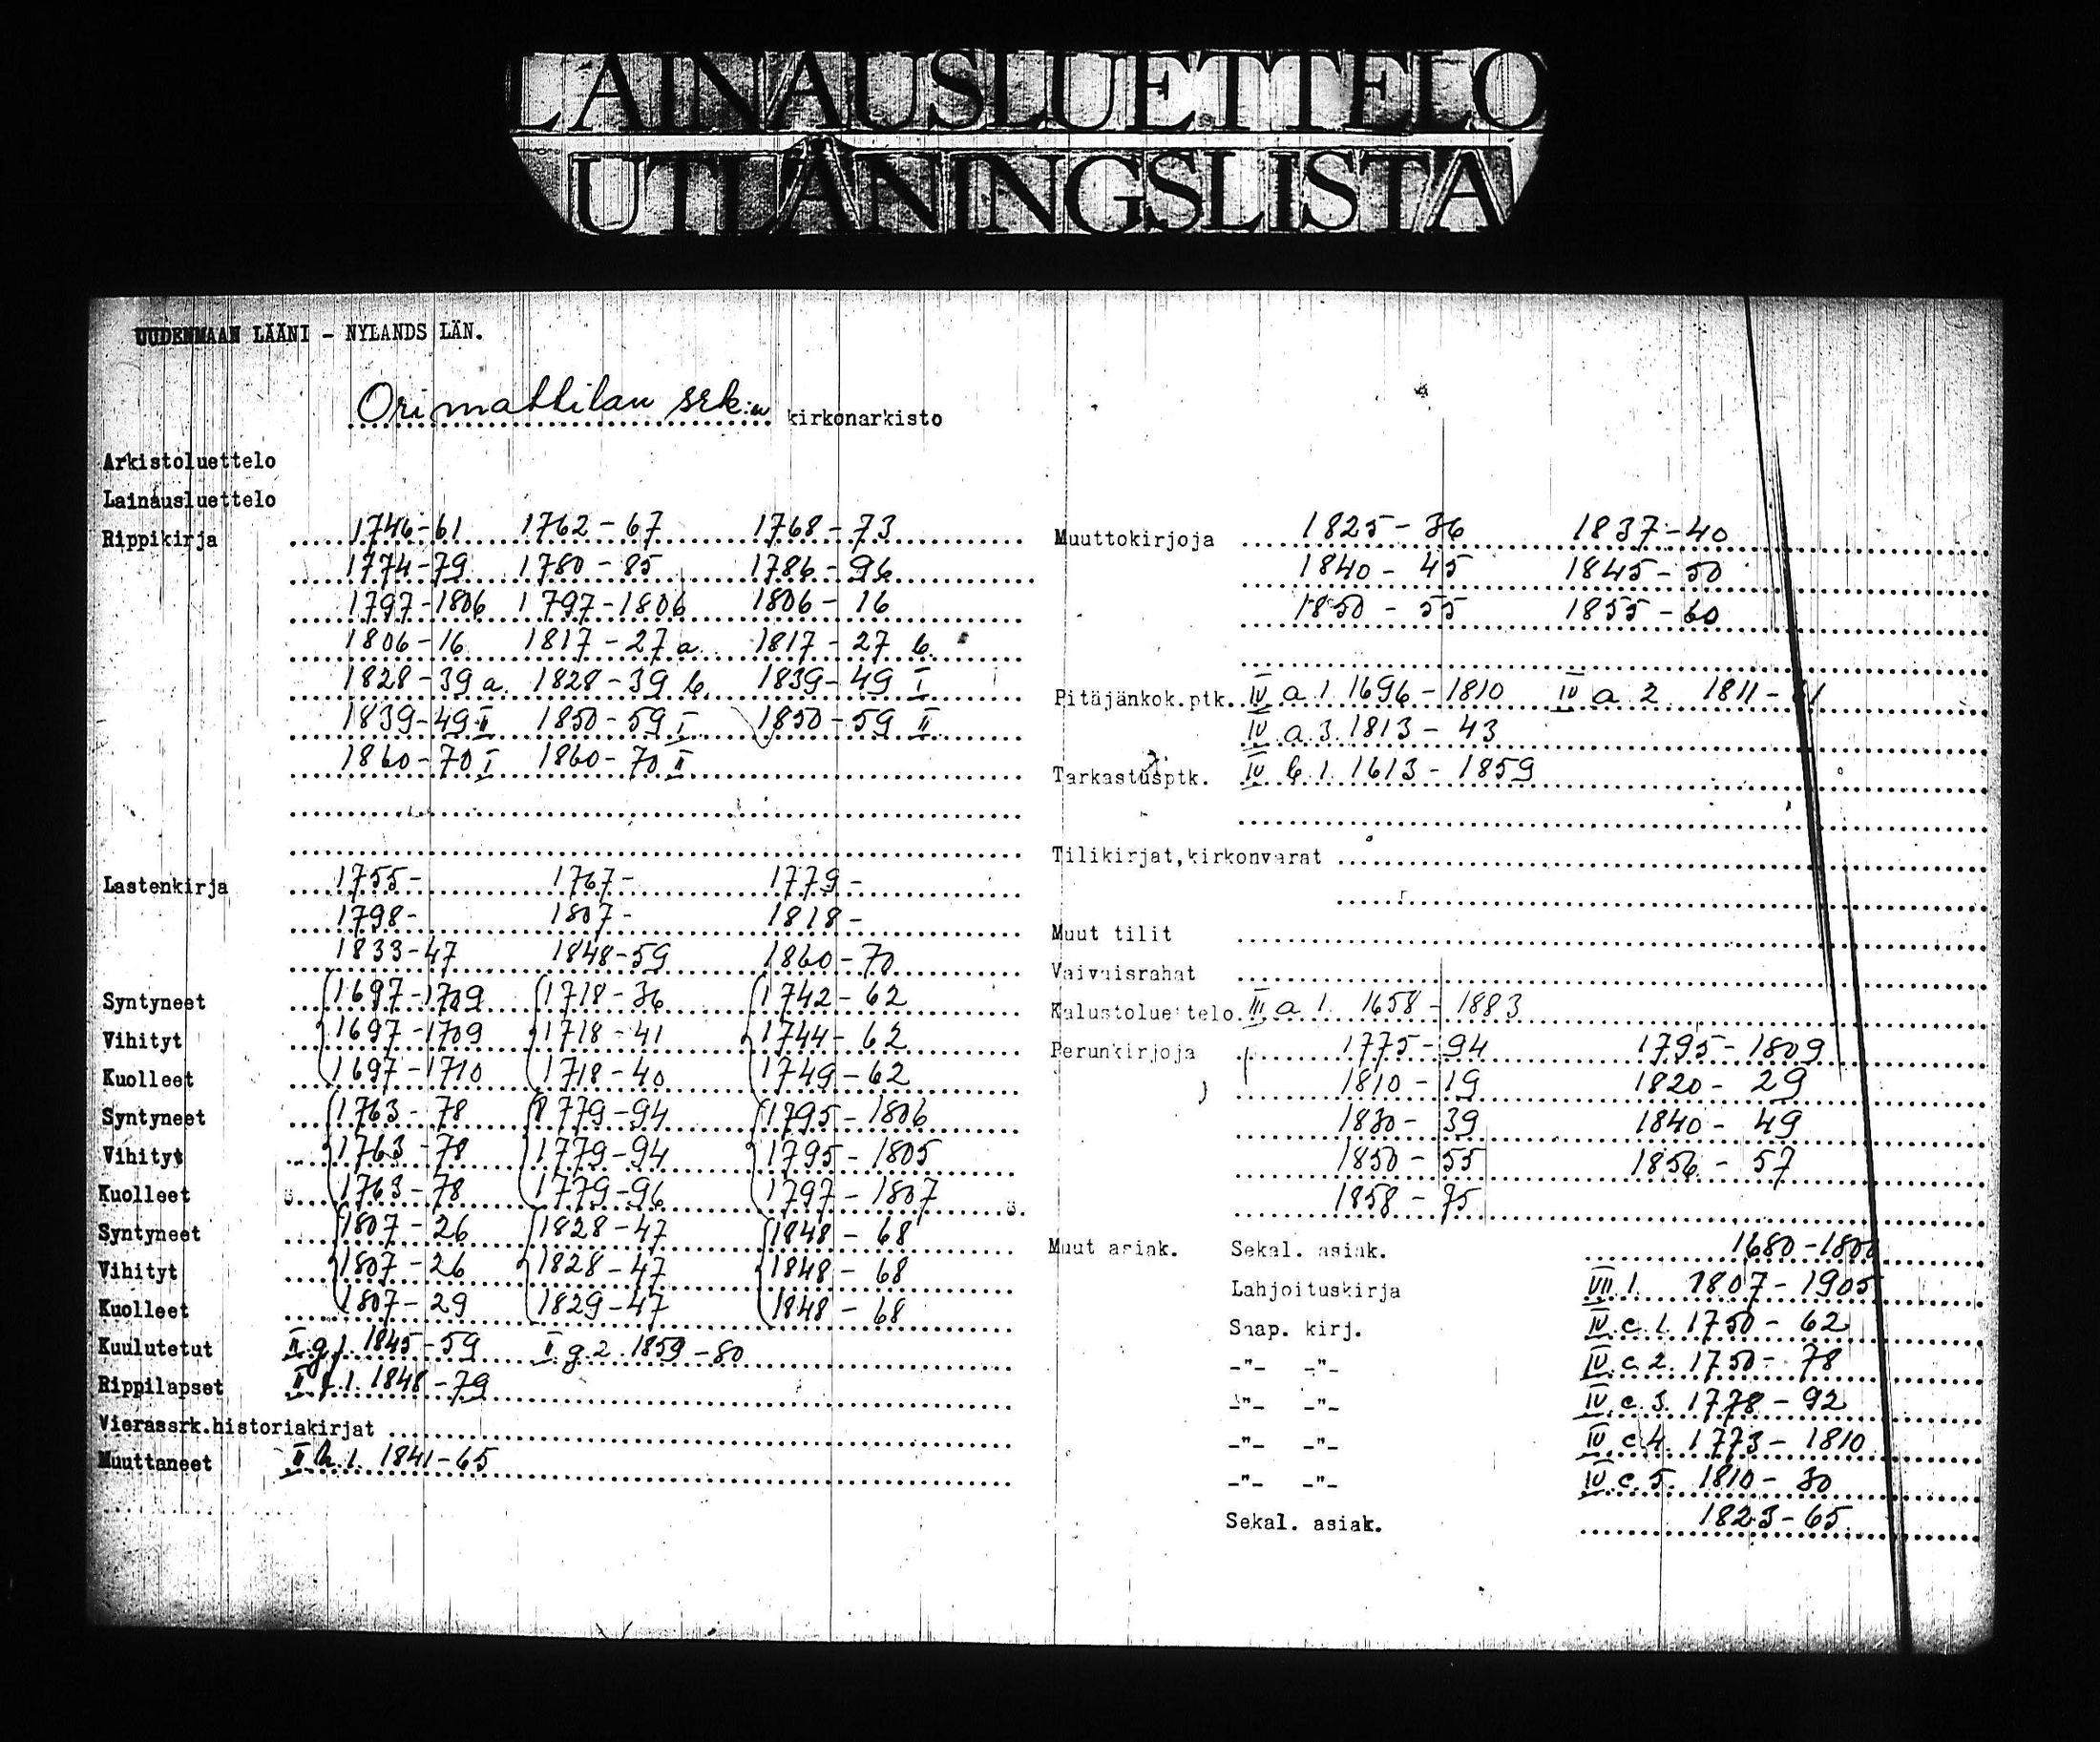 LAINAUSLUETTELO
UTLÅNINGSLISTA
UUDENMAAN LÄÄNI - NYLANDS LÄN.
Orimattilan srk:n kirkonarkisto
Arkistoluettelo
Lainausluettelo
Rippikirja 1746-61 1762-67 1768-73
1774-79 1780-85 1786-96
1797-1806 1797-1806 1806-16
1806-16 1817-27 a 1817-27 b
1828-39 a 1828-39 b 1839-49 I
1839-49 II 1850-59 I 1850-59 II
1860-70 I 1860-70 II
Lastenkirja 1755- 1767- 1779-
1798- 1807- 1818-
1833-47 1848-59 1860-70
Syntyneet 1697-1709 1718-36 1742-62
Vihityt 1697-1709 1718-41 1744-62
Kuolleet 1697-1710 1718-40 1749-62
Syntyneet 1763-78 1779-94 1795-1806
Vihityt 1763-78 1779-94 1795-1805
Kuolleet 1763-78 1779-96 1797-1807
Syntyneet 1807-26 1828-47 1848-68
Vihityt 1807-26 1828-47 1848-68
Kuolleet 1807-29 1829-47 1848-68
Kuulutetut II g.1. 1845-59 II g.2. 1859-80
Rippilapset II f.1. 1848-79
Vierassrk.historiakirjat
Muuttaneet II h.1. 1841-65
Muuttokirjoja 1825-36 1837-40
1840-45 1845-50
1850-55 1855-60
Pitäjänkok.ptk. IV a.1. 1696-1810 IV a.2. 1811-
IV a.3. 1813-43
Tarkastusptk. IV b.1. 1613-1859
Tilikirjat,kirkonvarat
Muut tilit
Vaivaisrahat
Kalustoluettelo III a.1. 1658-1883
Perunkirjoja 1775-94 1795-1809
1810-19 1820-29
1830-39 1840-49
1850-55 1856-57
1858-75
Muut asiak. Sekal. asiak. 1680-1800
Lahjoituskirja VII.1. 1807-1905
Saap. kirj. IV.c.1. 1750-62
-"- -"- IV.c.2. 1750-78
-"- -"- IV.c.3. 1778-92
-"- -"- IV.c.4. 1773-1810
-"- -"- IV.c.5. 1810-30
Sekal. asiak. 1823-65